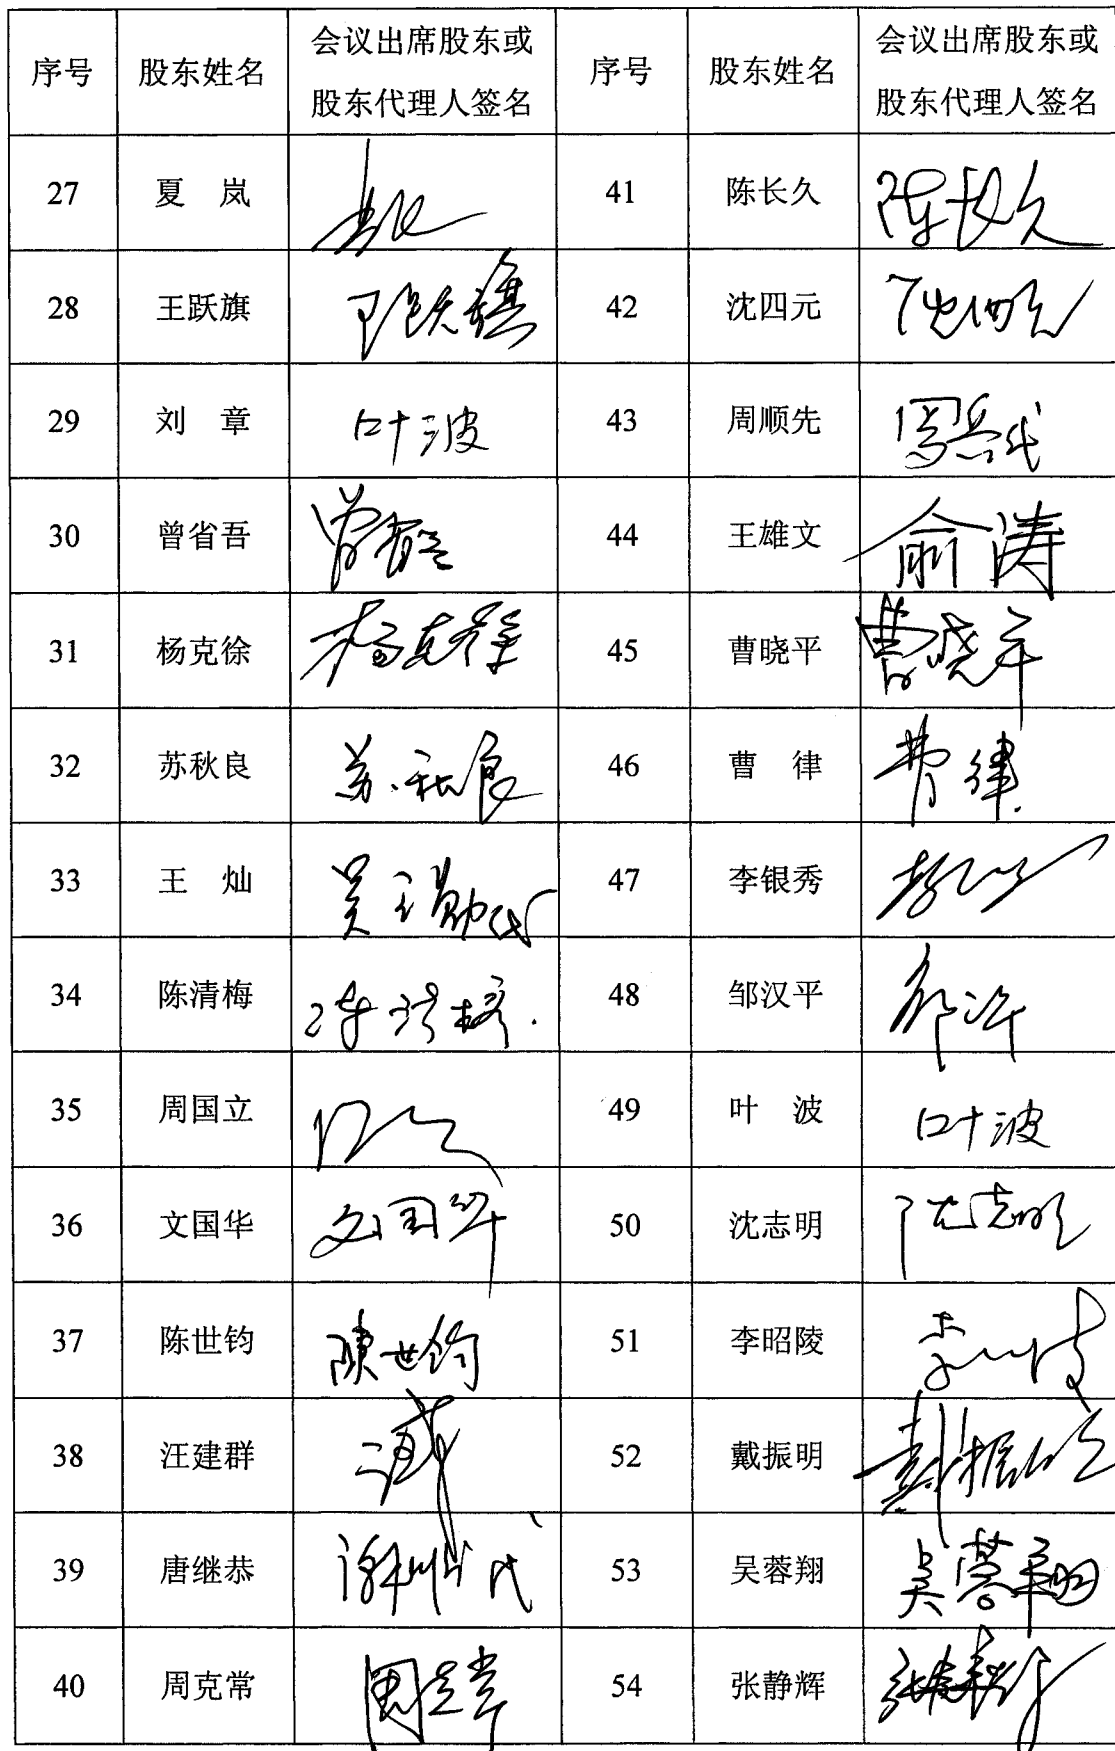 序号 股东姓名 会议出席股东或股东代理人签名 序号 股东姓名 会议出席股东或股东代理人签名
27 夏 岚 41 陈长久 陈长久
28 王跃旗 王跃旗 42 沈四元 沈四元
29 刘 章 叶波 43 周顺先
30 曾省吾 曾省吾 44 王雄文 俞涛
31 杨克徐 杨克徐 45 曹晓平 曹晓平
32 苏秋良 苏秋良 46 曹 律 曹律
33 王 灿 47 李银秀
34 陈清梅 陈清梅 48 邹汉平
35 周国立 49 叶 波 叶波
36 文国华 文国华 50 沈志明 沈志明
37 陈世钧 陈世钧 51 李昭陵
38 汪建群 52 戴振明 戴振明
39 唐继恭 53 吴蓉翔 吴蓉翔
40 周克常 周克常 54 张静辉 张静辉